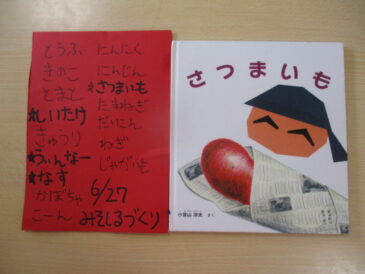 とうふ
きのこ
とまと
★しいたけ
きゅうり
★うぃんなー
★なす
かぼちゃ
こーん
にんにく
にんじん
★さつまいも
たまねぎ
だいこん
ねぎ
じゃがいも
6/27
みそしるづくり
さつまいも